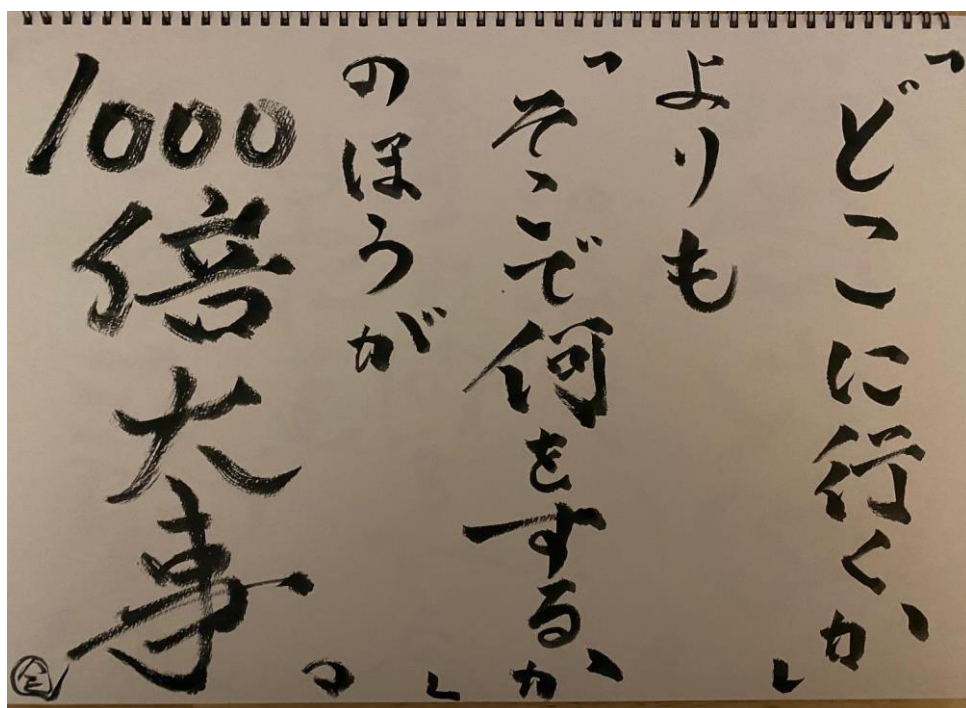 「どこに行くか」
よりも
「そこで何をするか」
のほうが
1000倍大事。